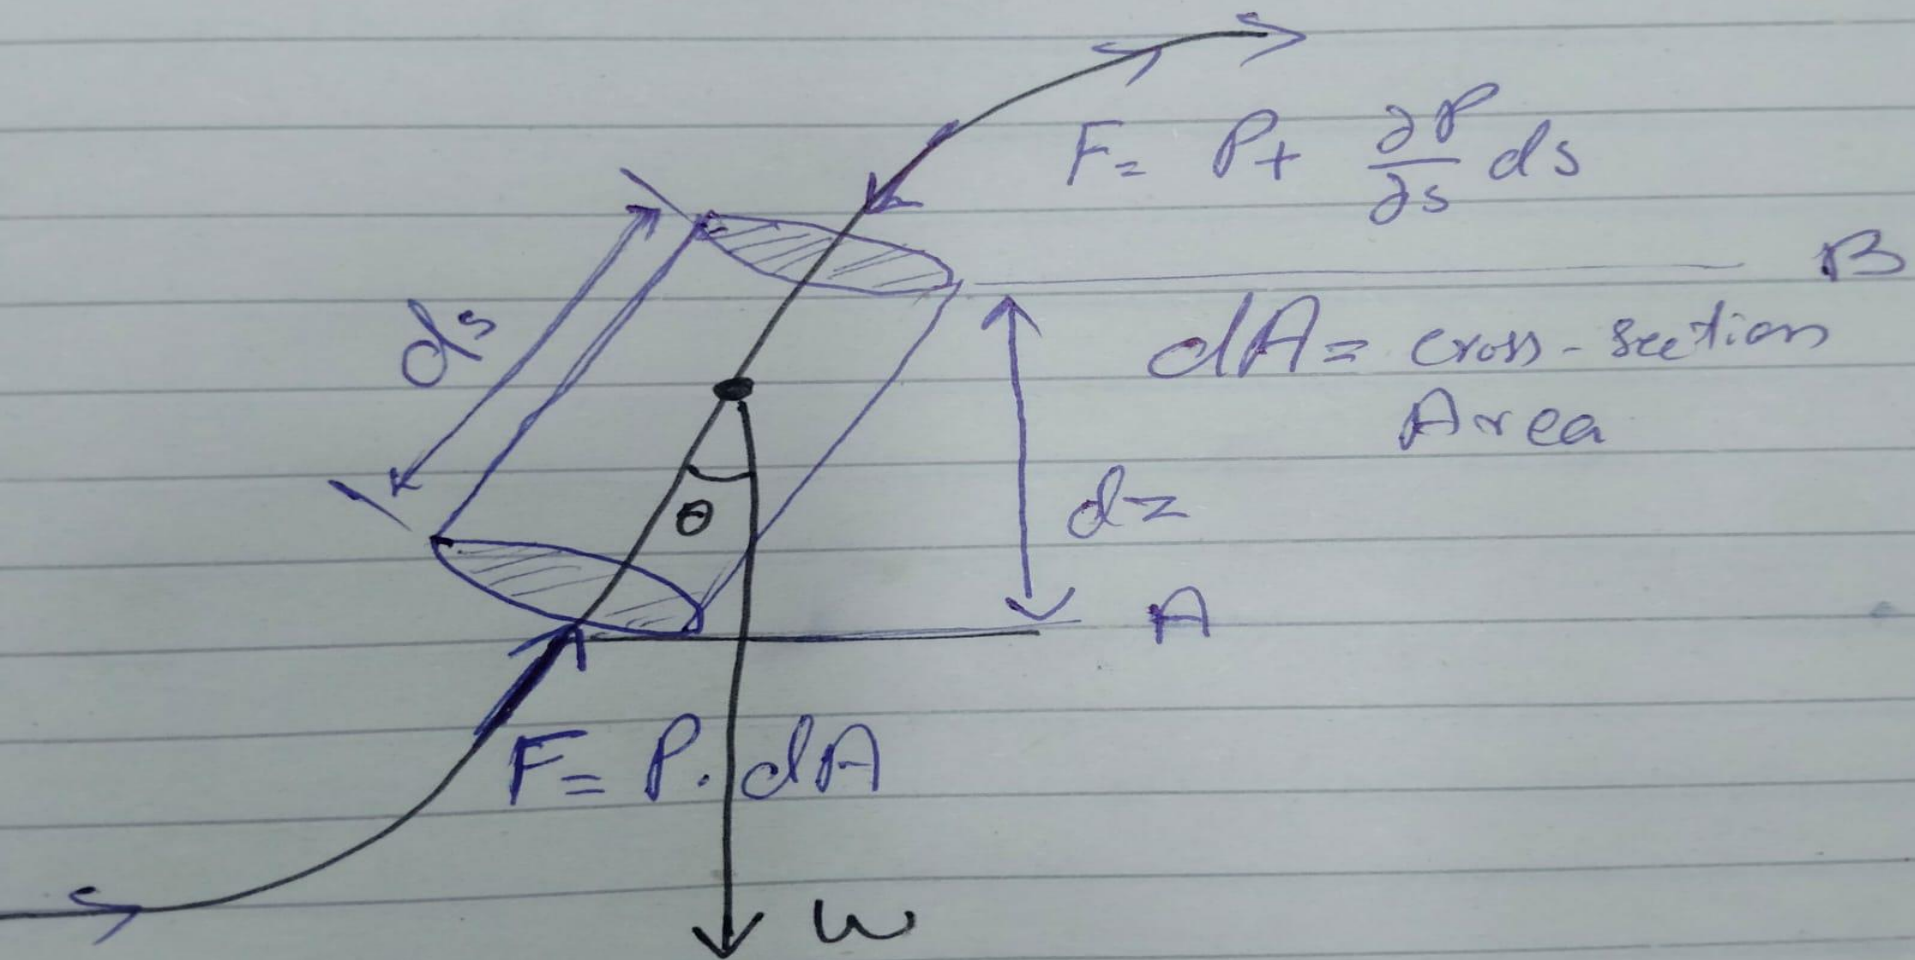 F = P + ∂P/∂s ds
B
ds
dA = cross-section
Area
dz
θ
A
F = P. dA
W